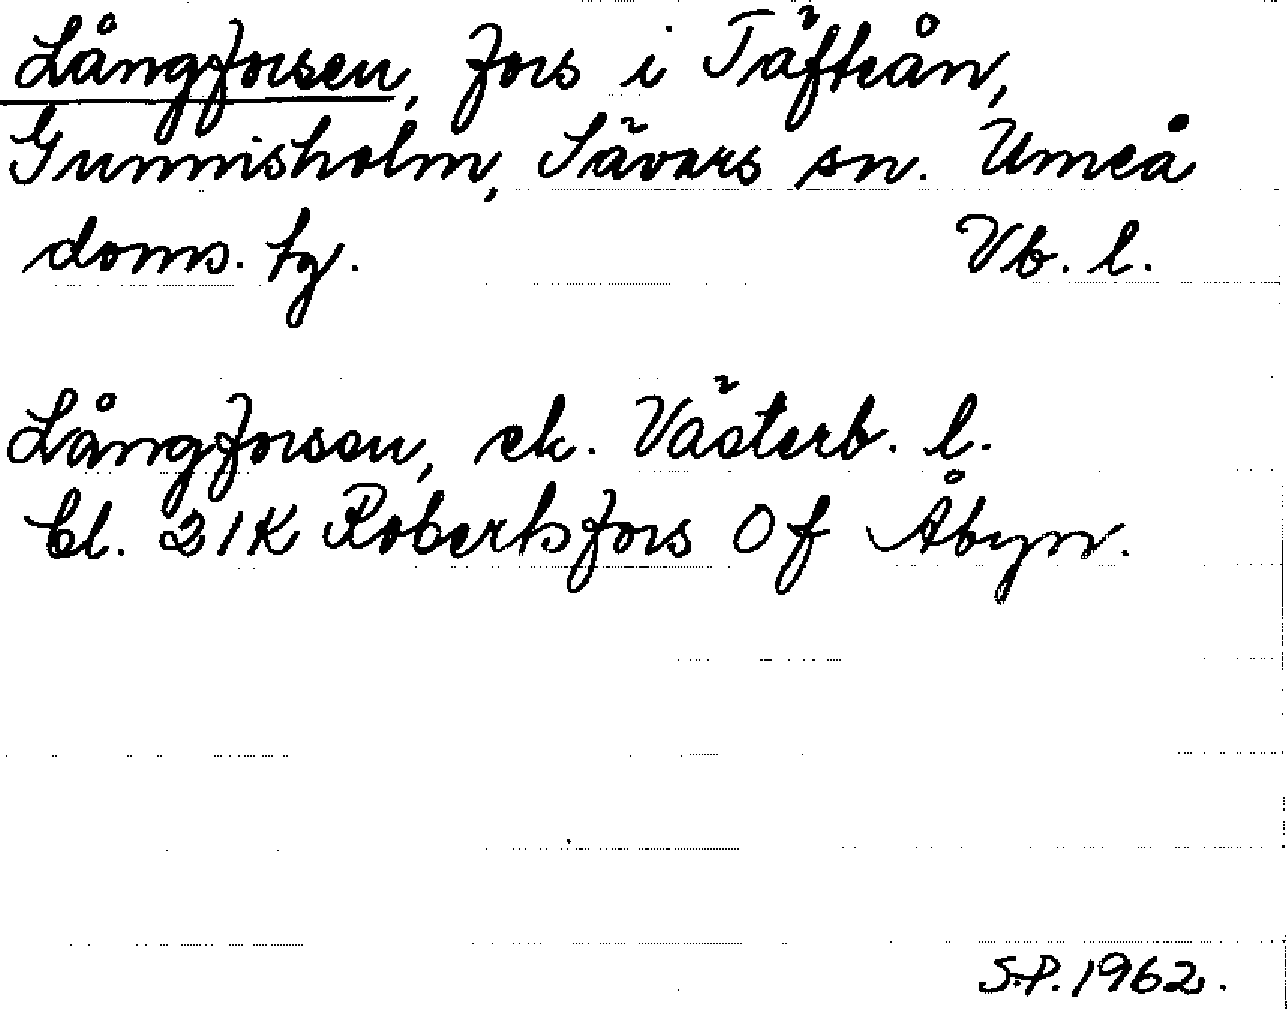 Långforsen, fors i Täfteån,
Gunnisholm, Sävars sn. Umeå
doms. tg. Vb. l.
Långforsen, ek. Västerb. l.
bl. 21K Robertsfors Of Åbyn.
S.P. 1962.